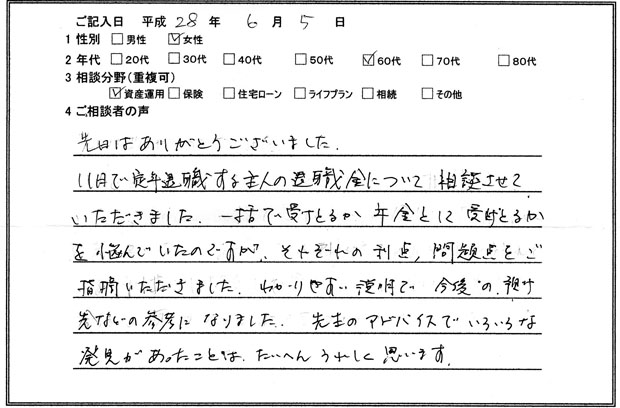 ご記入日 平成 28 年 6 月 5 日
1 性別 □男性 ☑女性
2 年代 □20代 □30代 □40代 □50代 ☑60代 □70代 □80代
3 相談分野(重複可)
☑資産運用 □保険 □住宅ローン □ライフプラン □相続 □その他
4 ご相談者の声
先日はありがとうございました.
11月で定年退職する主人の退職金について 相談させて
いただきました. 一括で受けとるか 年金として 受けとるか
を悩んでいたのですが、それぞれの利点, 問題点をご
指摘いただきました. わかりやすい説明で 今後の、預け
先などの参考に なりました. 先生のアドバイスでいろいろな
発見があったことは、たいへん うれしく 思います.